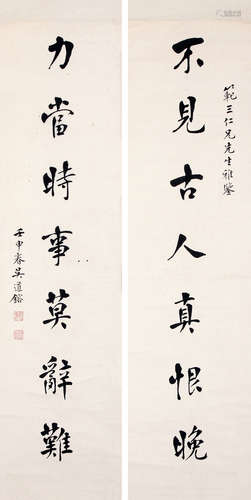 範三仁兄先生雅鑒
不見古人真恨晚
力當時事莫辭難
壬申春吳道鎔